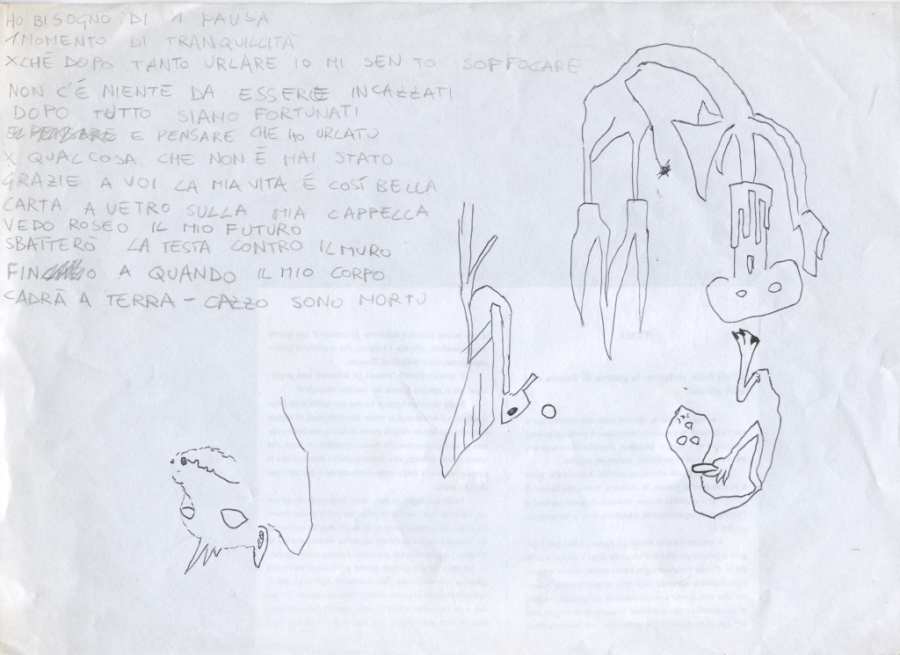 HO BISOGNO DI 1 PAUSA
1 MOMENTO DI TRANQUILLITÀ
XCHÉ DOPO TANTO URLARE IO MI SENTO SOFFOCARE
NON C'È NIENTE DA ESSERE INCAZZATI
DOPO TUTTO SIAMO FORTUNATI
E PENSARE CHE HO URLATO
X QUALCOSA CHE NON È MAI STATO
GRAZIE A VOI LA MIA VITA É COSÌ BELLA
CARTA A VETRO SULLA MIA CAPPELLA
VEDO ROSEO IL MIO FUTURO
SBATTERÒ LA TESTA CONTRO IL MURO
FINO A QUANDO IL MIO CORPO
CADRÀ A TERRA - CAZZO SONO MORTO